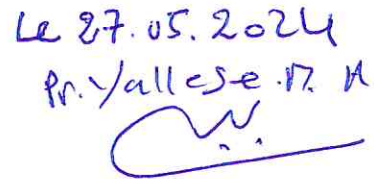 Le 27.05.2024
Pr. Yallese .M. A